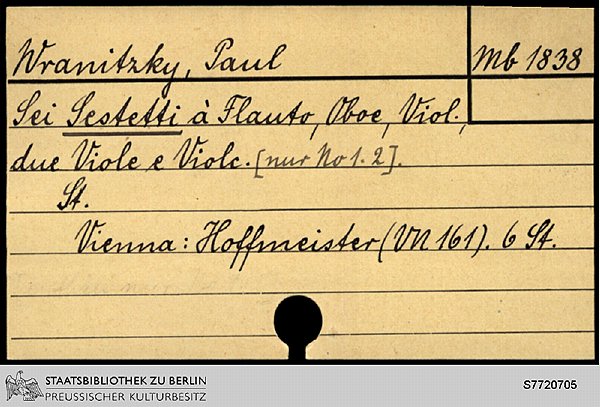 Wranitzky, Paul
Mb 1838
Sei Sestetti à Flauto, Oboe, Viol.,
due Viole e Violc. [nur No 1. 2].
St.
Vienna: Hoffmeister (VN 161). 6 St.
STAATSBIBLIOTHEK ZU BERLIN
PREUSSISCHER KULTURBESITZ
S7720705